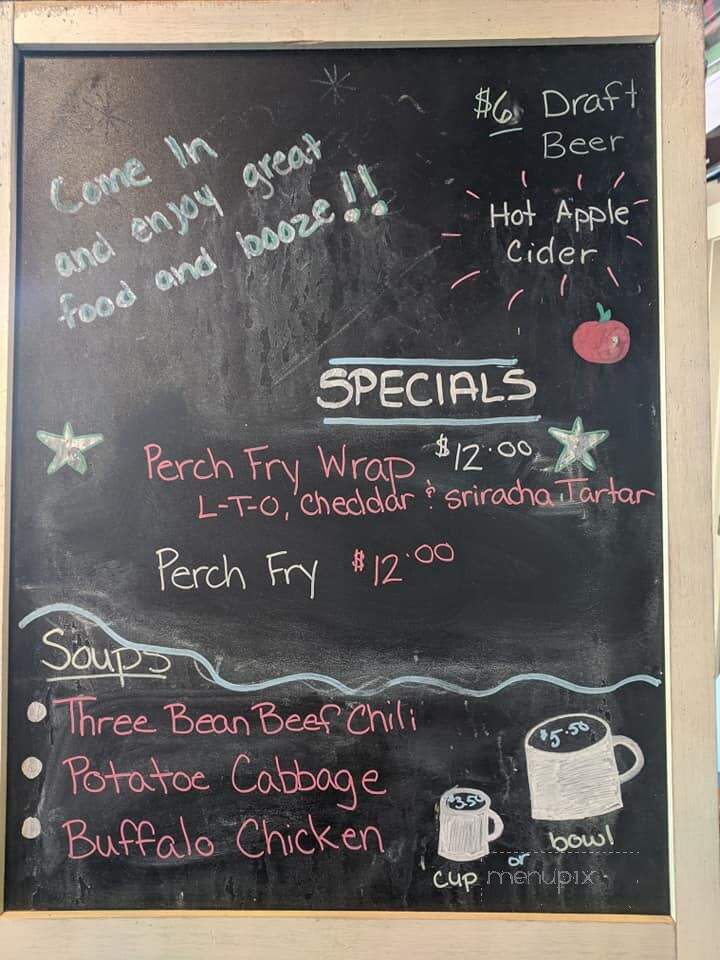 Come In
and enjoy great
food and booze!!
$6 Draft
Beer
Hot Apple
Cider
SPECIALS
Perch Fry Wrap $12.00
L-T-O, Cheddar & Sriracha Tartar
Perch Fry $12.00
Soups
Three Bean Beef Chili
Potatoe Cabbage
Buffalo Chicken
$3.50
cup
or
$5.50
bowl
menupix